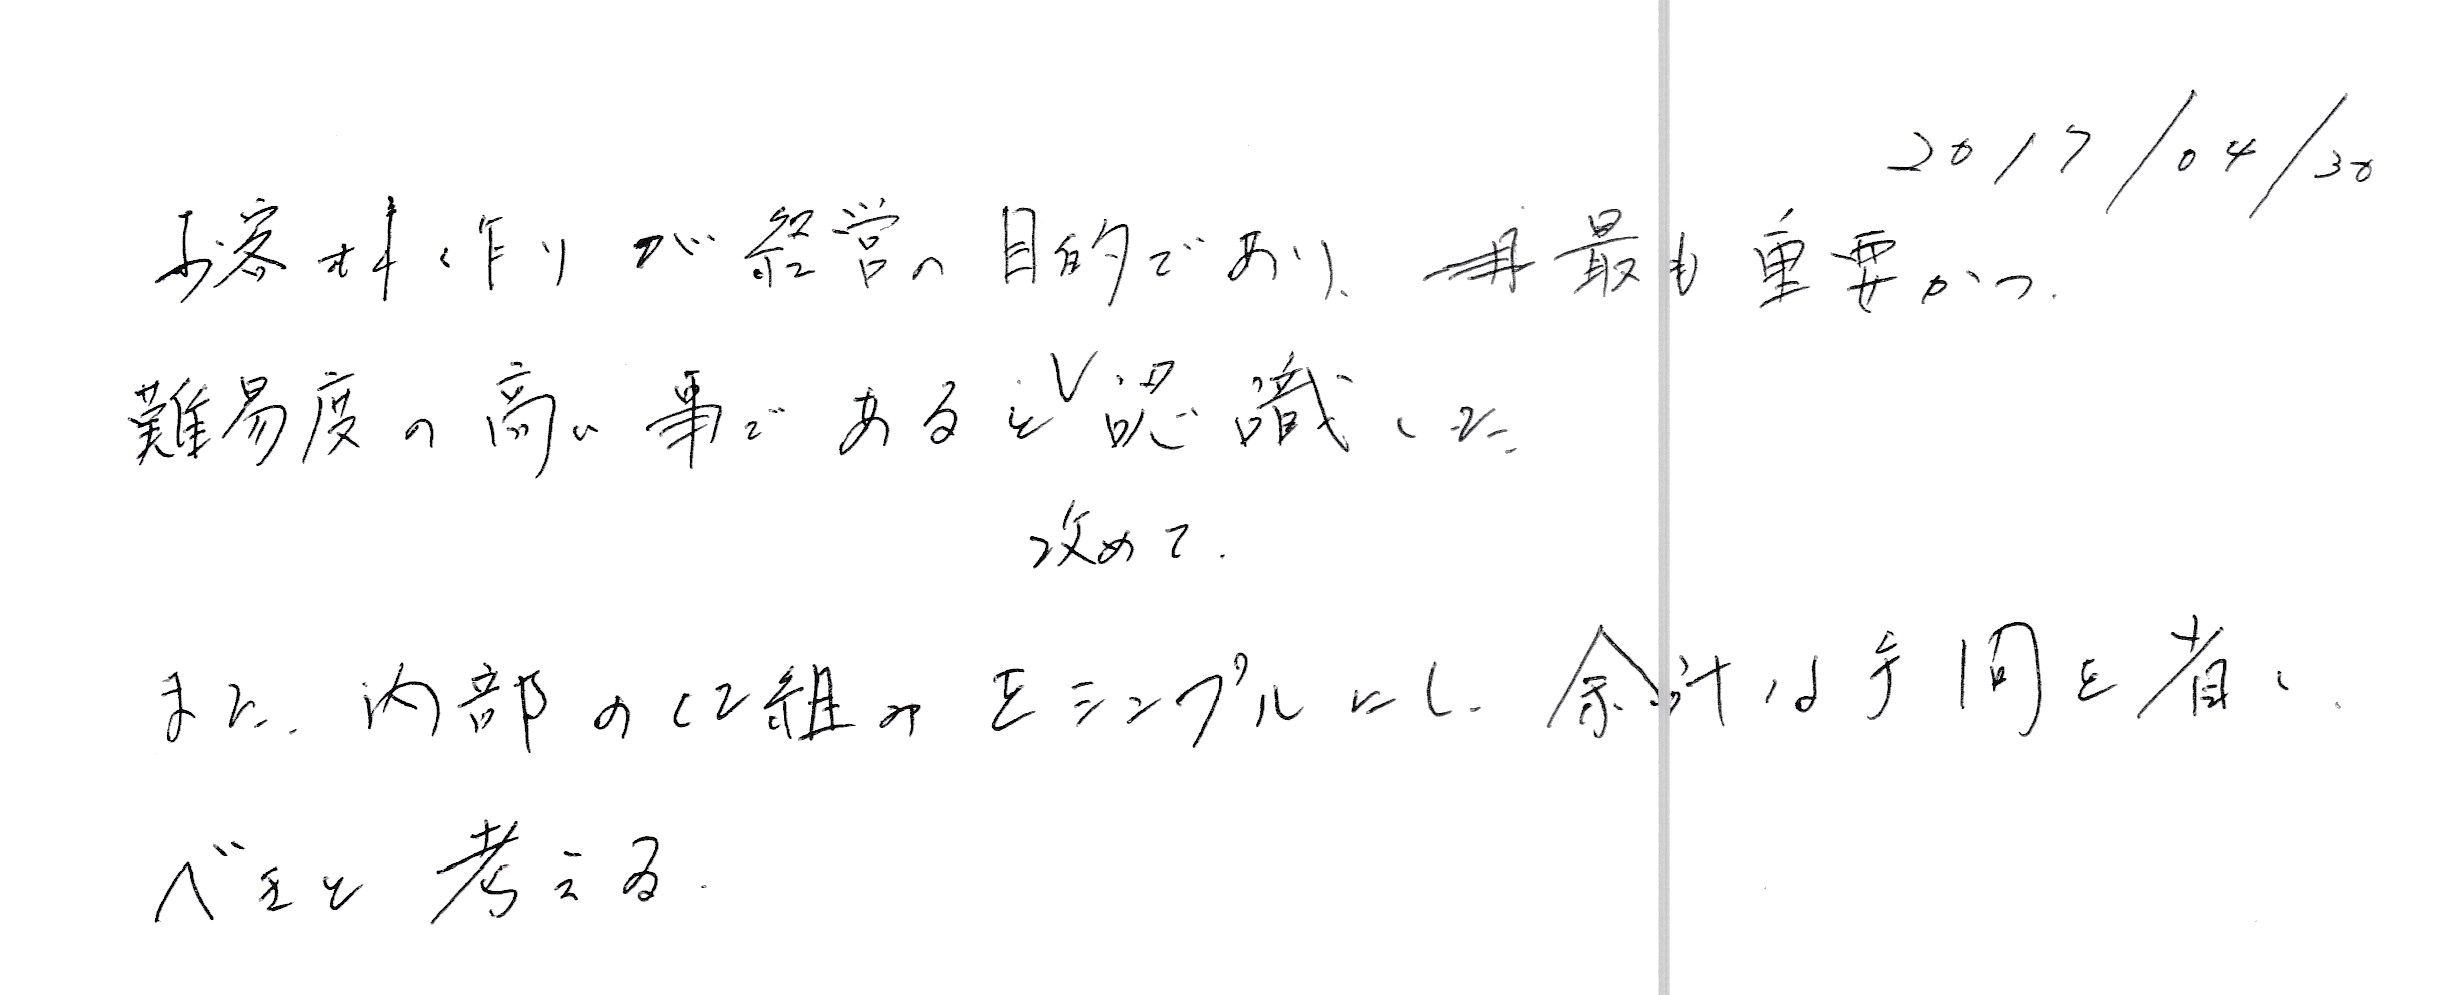 2017/04/30
お客様作りが経営の目的であり、最も重要かつ、
難易度の高い事であると認識した
改めて、
また、内部の仕組みをシンプルにし、余計な手間を省く、
べきと考える。